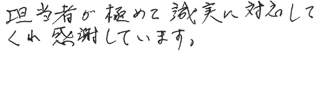 担当者が極めて誠実に対応して
くれ感謝しています。